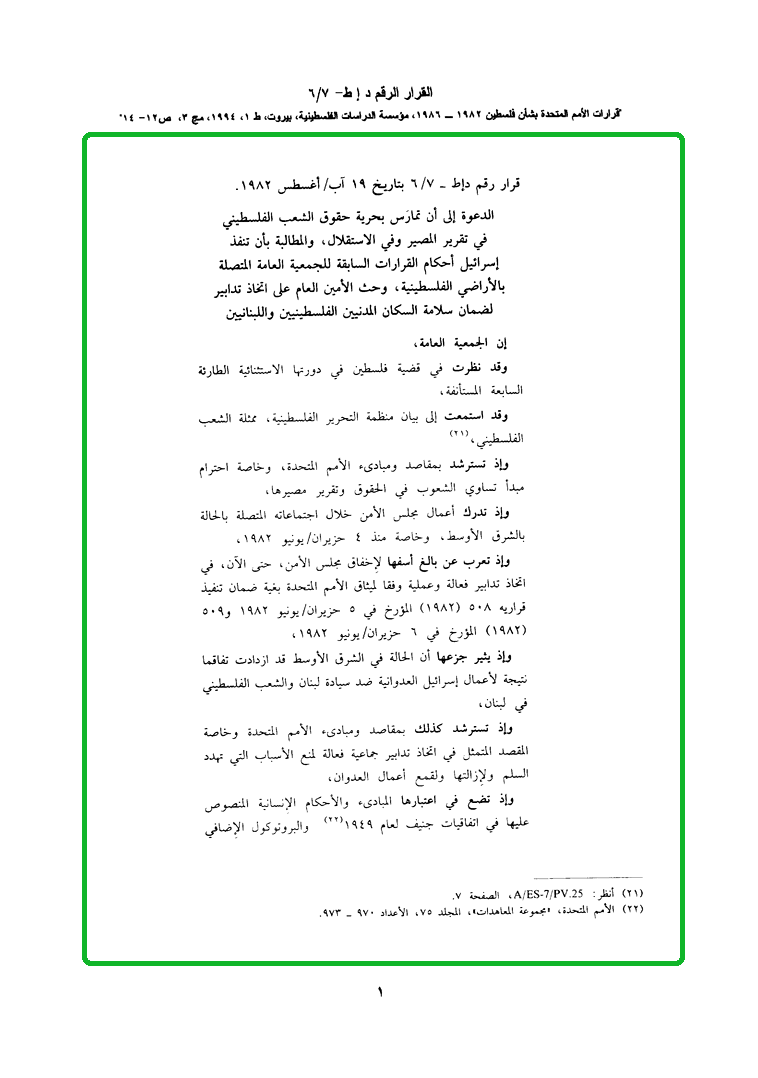 القرار الرقم د إ ط- ٦/٧
"قرارات الأمم المتحدة بشأن فلسطين ١٩٨٢ ــ ١٩٨٦، مؤسسة الدراسات الفلسطينية، بيروت، ط ١، ١٩٩٤، مج ٣، ص١٢- ١٤"
قرار رقم دإط ـ ٦/٧ بتاريخ ١٩ آب/ أغسطس ١٩٨٢.
الدعوة إلى أن تمارَس بحرية حقوق الشعب الفلسطيني
في تقرير المصير وفي الاستقلال، والمطالبة بأن تنفذ
إسرائيل أحكام القرارات السابقة للجمعية العامة المتصلة
بالأراضي الفلسطينية، وحث الأمين العام على اتخاذ تدابير
لضمان سلامة السكان المدنيين الفلسطينيين واللبنانيين
إن الجمعية العامة،
وقد نظرت في قضية فلسطين في دورتها الاستثنائية الطارئة
السابعة المستأنفة،
وقد استمعت إلى بيان منظمة التحرير الفلسطينية، ممثلة الشعب
الفلسطيني،(٢١)
وإذ تسترشد بمقاصد ومبادىء الأمم المتحدة، وخاصة احترام
مبدأ تساوي الشعوب في الحقوق وتقرير مصيرها،
وإذ تدرك أعمال مجلس الأمن خلال اجتماعاته المتصلة بالحالة
بالشرق الأوسط، وخاصة منذ ٤ حزيران/يونيو ١٩٨٢،
وإذ تعرب عن بالغ أسفها لإخفاق مجلس الأمن، حتى الآن، في
اتخاذ تدابير فعالة وعملية وفقا لميثاق الأمم المتحدة بغية ضمان تنفيذ
قراريه ٥٠٨ (١٩٨٢) المؤرخ في ٥ حزيران/يونيو ١٩٨٢ و٥٠٩
(١٩٨٢) المؤرخ في ٦ حزيران/يونيو ١٩٨٢،
وإذ يثير جزعها أن الحالة في الشرق الأوسط قد ازدادت تفاقما
نتيجة لأعمال إسرائيل العدوانية ضد سيادة لبنان والشعب الفلسطيني
في لبنان،
وإذ تسترشد كذلك بمقاصد ومبادىء الأمم المتحدة وخاصة
المقصد المتمثل في اتخاذ تدابير جماعية فعالة لمنع الأسباب التي تهدد
السلم ولإزالتها ولقمع أعمال العدوان،
وإذ تضع في اعتبارها المبادىء والأحكام الإنسانية المنصوص
عليها في اتفاقيات جنيف لعام ١٩٤٩(٢٢) والبروتوكول الإضافي
(٢١) أنظر: A/ES-7/PV.25، الصفحة ٧.
(٢٢) الأمم المتحدة، «مجموعة المعاهدات»، المجلد ٧٥، الأعداد ٩٧٠ ـ ٩٧٣.
١